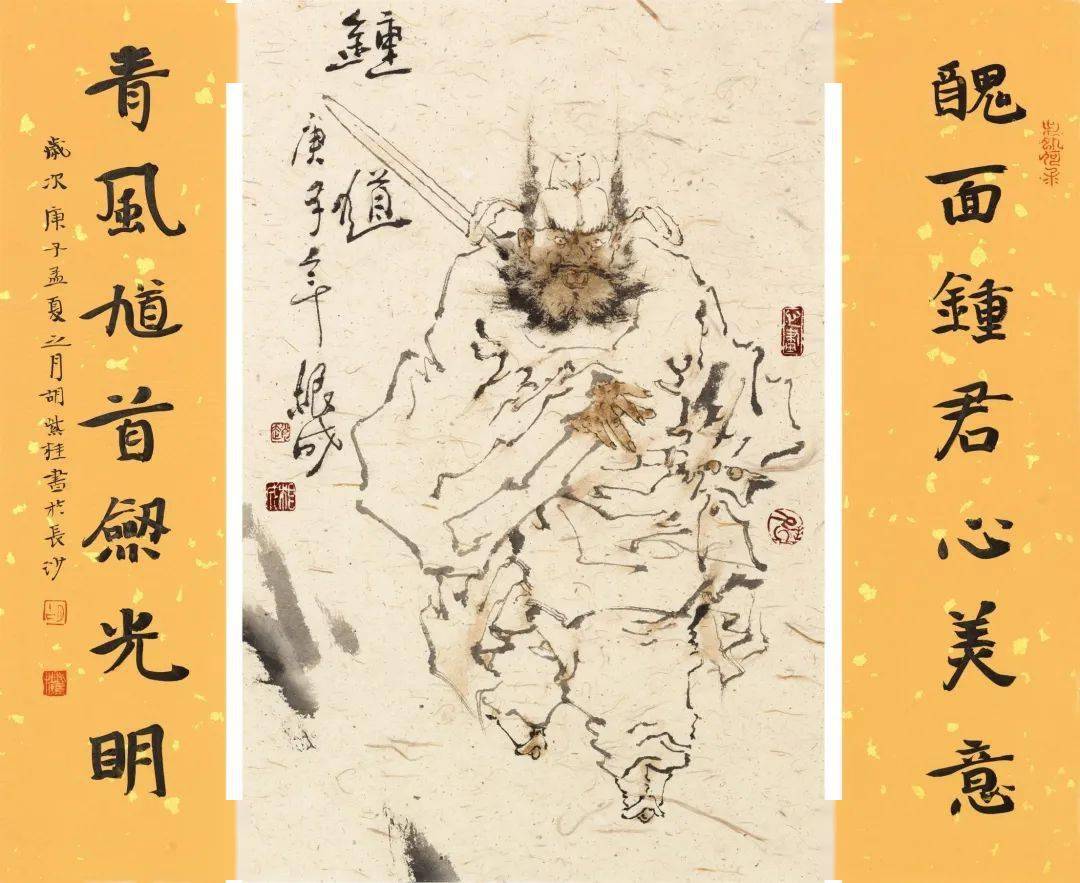 醜面鍾君心美意
鍾馗
庚子年
青風馗首劒光明
歲次庚子孟夏之月胡紫桂書於長沙